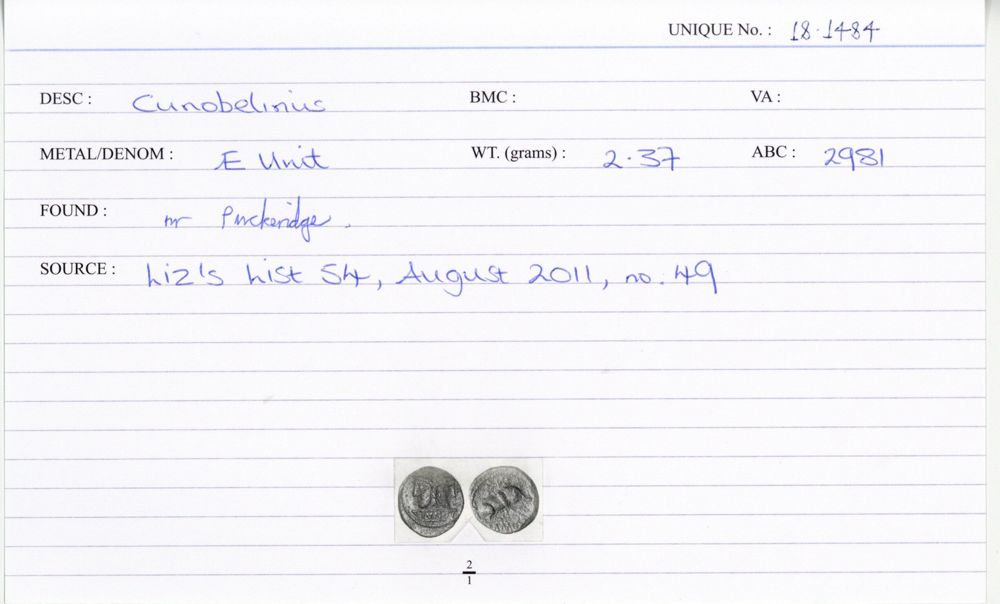 UNIQUE No. : 18.1484
DESC : Cunobelinus BMC : VA :
METAL/DENOM : Æ Unit WT. (grams) : 2.37 ABC : 2981
FOUND : nr Puckeridge.
SOURCE : Liz's List 54, August 2011, no. 49
2
1